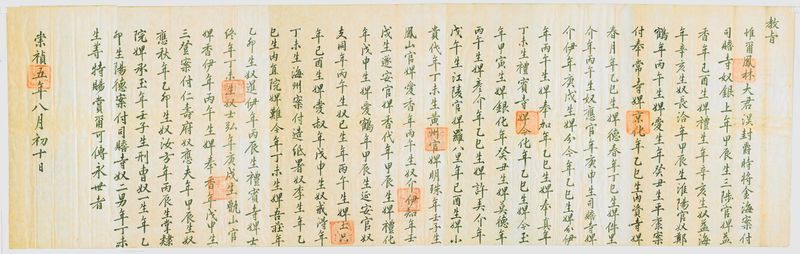 教旨
惟爾鳳林大君淏封爵時將金海案付
司贍寺奴銀上年甲辰生三陟官婢益
香年己酉生婢禮生年辛亥生奴益海
年辛亥生奴長洽年甲辰生淮陽官奴鄭
鶴年丙午生婢愛生年癸丑生平葉案
付奉常寺婢京化年乙巳生內資寺婢
春月年乙巳生婢德春年丁巳生婢件里
介年丙午生奴應官年庚申生司贍寺婢
介伊年庚戌生婢今年乙巳生婢介伊
年丙午生婢奉加年乙巳生婢奉真年
丁未生禮賓寺婢今化年乙巳生婢今玉
年甲寅生婢銀化年癸丑生婢莫德年
丙午生婢參介年乙巳生婢許夫介年
戊午生江陵官婢羅八里年己酉生婢小
貴代年丁未生黃州官婢明珠年壬子生
鳳山官婢愛香年丙午生奴介伊知年壬
戊生遂安官婢香代年甲辰生婢禮化
年戊申生婢愛鶴年甲辰生延安官奴
支同年丙午生奴巳生年丙午生婢玉只
年己酉生婢愛叔年戊申生奴戒浔年
丁未生海州案付造紙署奴李生年乙
巳生內宣院婢難今年丁未生婢吾莊年
乙卯生奴進伊年丙辰生禮賓寺婢士
終年丁未生奴士弘年庚戌生甑山官
婢香伊年丙午生婢奉香年戊申生
三登案付仁壽府奴應夫年甲辰生奴
應秋年乙卯生奴汝方年丙辰生掌隸
院婢承玉年壬子生刑曹奴一生年乙
卯生陽德案付司贍寺奴二男年丁未
生等特賜賞爾可傳永世者
崇禎五年八月初十日